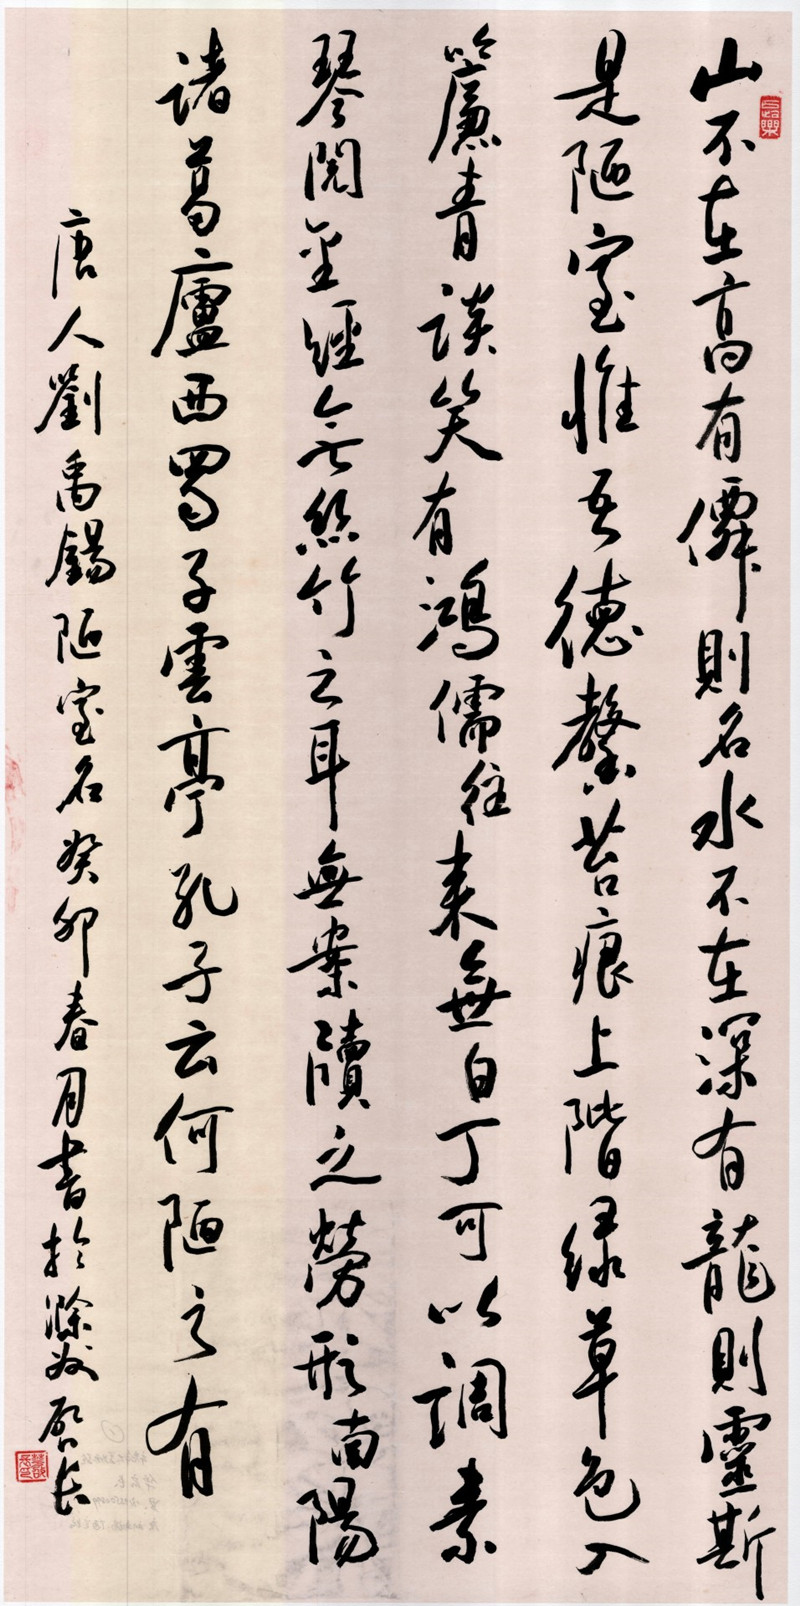 山不在高有僊則名水不在深有龍則靈斯
是陋室惟吾德馨苔痕上階绿草色入
簾青談笑有鴻儒往来無白丁可以調素
琴閲金經無絲竹之耳無案牘之勞形南陽
諸葛廬西蜀子雲亭孔子云何陋之有
唐人劉禹錫陋室名癸卯春月書於滁州啓长